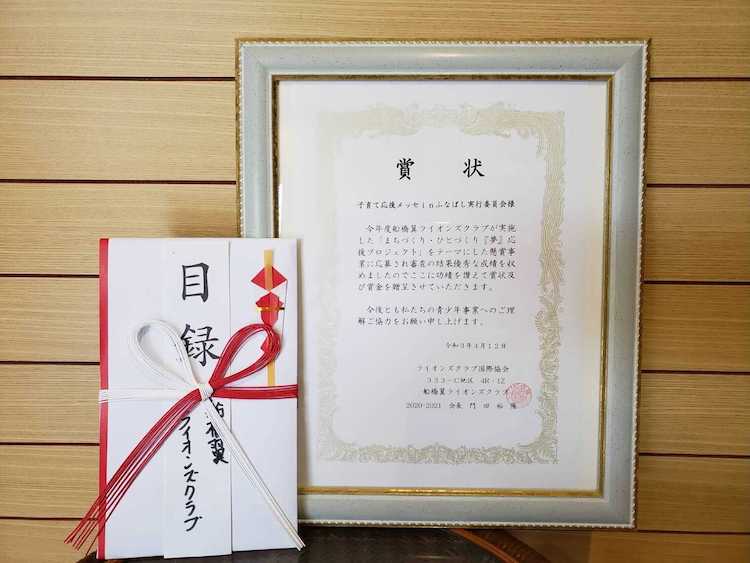 賞状
子育て応援メッセinふなばし実行委員会様
今年度船橋翼ライオンズクラブが実施
した「まちづくり・ひとづくり『夢』応
援プロジェクト」をテーマにした懸賞事
業に応募され審査の結果優秀な成績を収
めましたのでここに功績を讃えて賞状及
び賞金を贈呈させていただきます。
今後とも私たちの青少年事業へのご理
解ご協力をお願い申し上げます。
令和3年4月12日
ライオンズクラブ国際協会
333-C地区 4R・1Z
船橋翼ライオンズクラブ
2020-2021 会長 門田裕
目録
翼
ライオンズクラブ